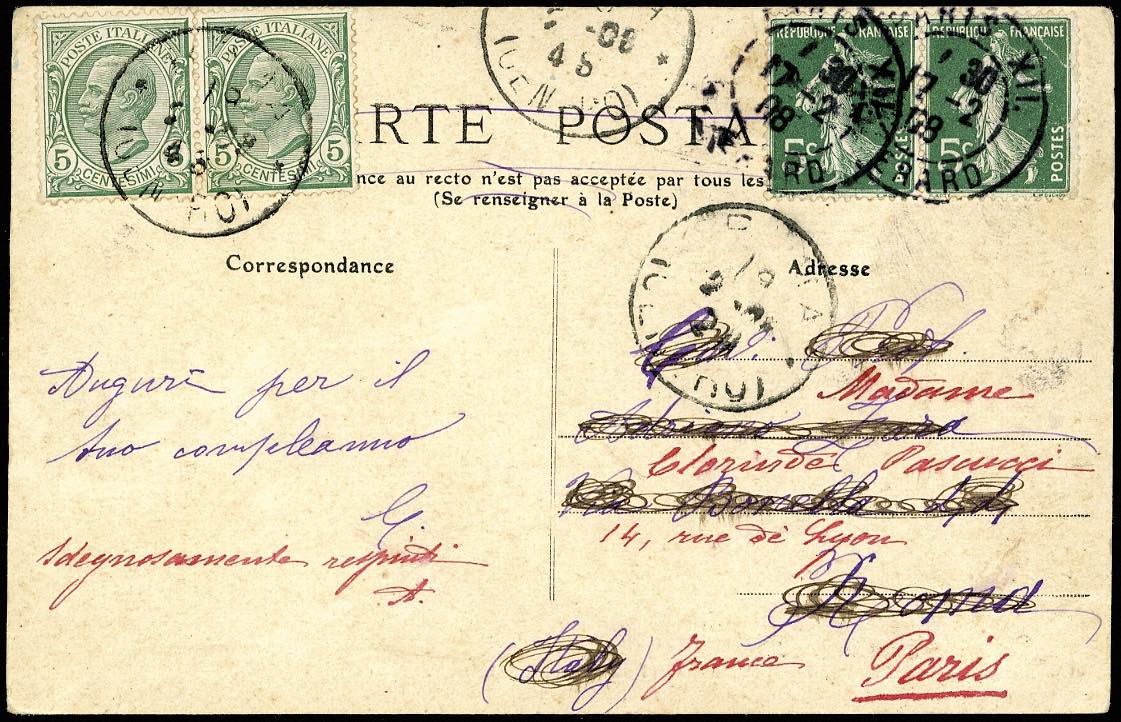 POSTE ITALIANE
5 CENTESIMI
POSTE ITALIANE
5 CENTESIMI 5
08
45
RÉPUBLIQUE FRANÇAISE
5c POSTES
RÉPUBLIQUE FRANÇAISE
5c POSTES
PARIS XII
1 30
17 - 2
08
PARIS XII.
1 30
17 - 2
08
RTE POSTA
nce au recto n'est pas acceptée par tous les
(Se renseigner à la Poste)
Correspondance
Adresse
Auguri per il
tuo compleanno
G.
Sdegnosamente respinti
A.
Prof.
Madame
Adriano
Clorinde Pascucci
Via Bonella
14, rue de Lyon
Roma
(Italy) france Paris